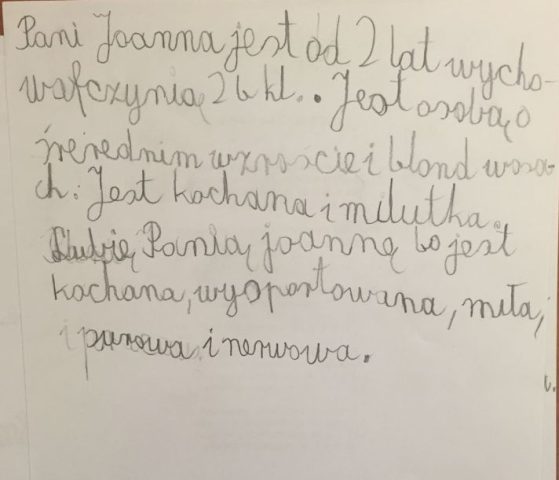 Pani Joanna jest od 2 lat wycho-
wafczynią 2 b kl.. Jest osobą o
śrerednim wzroście i blond wosa-
ch. Jest kochana i milutka.
Lubię Panią joannę bo jest
kochana, wysportowana, miła,
i nerwowa.